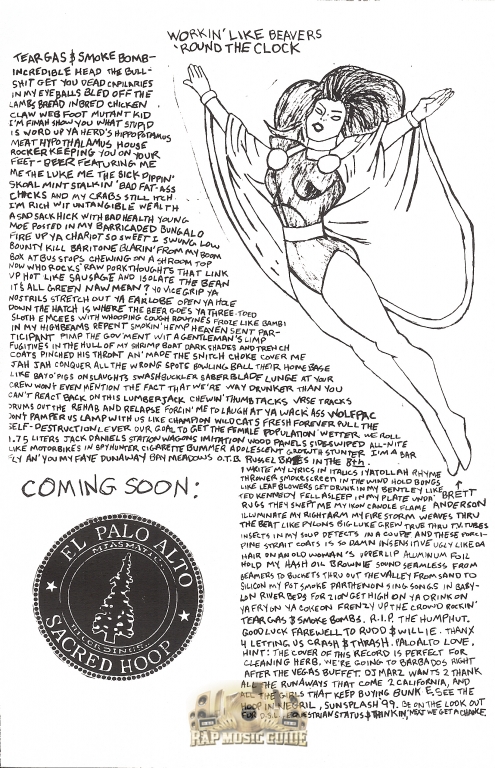 WORKIN' LIKE BEAVERS
'ROUND THE CLOCK
TEAR GAS & SMOKE BOMB-
INCREDIBLE HEAD THE BULL-
SHIT GET YOU DEAD CAPILARIES
IN MY EYEBALLS BLED OFF THE
LAMBS BREAD INBRED CHICKEN
CLAW WEB FOOT MUTANT KID
I'M FINAH SHOW YOU WHAT STUPID
IS WORD UP YA HERD'S HIPPOPOTAMUS
MEAT HYPOTHALAMUS HOUSE
ROCKER KEEPING YOU ON YOUR
FEET- BEER FEATURING ME
ME THE LUKE ME THE BICK DIPPIN'
SKOAL MINT STALKIN' BAD FAT-ASS
CHICKS AND MY CRABS STILL ITCH
I'M RICH WIT UNTANGIBLE WEALTH
A SAD SACK HICK WITH BAD HEALTH YOUNG
MOE POSTED IN MY BARRICADED BUNGALO
FIRE UP YA CHARIOT SO SWEET I SWING LOW
BOUNTY KILL BARITONE BLARIN' FROM MY BOOM
BOX AT BUS STOPS CHEWING ON A SHROOM TOP
NOW WHO ROCKS RAW PORK THOUGHTS THAT LINK
UP HOT LIKE SAUSAGE AND ISOLATE THE BEAN
IT'S ALL GREEN NAW MEAN? YO VICE GRIP YA
NOSTRILS STRETCH OUT YA EARLOBE OPEN YA HOLE
DOWN THE HATCH IS WHERE THE BEER GOES YA THREE-TOED
SLOTH EMCEES WITH WHOOPING COUGH ROUTINES FROZE LIKE BAMBI
IN MY HIGHBEAMS REPENT SMOKIN' HEMP HEAVEN SENT PAR-
TICIPANT PIMP THE GOV'MENT WIT A GENTLEMAN'S LIMP
FUGITIVES IN THE HULL OF MY SHRIMP BOAT DARK SHADES AND TRENCH
COATS PINCHED HIS THROAT AN' MADE THE SNITCH CHOKE COVER ME
JAH JAH CONQUER ALL THE WRONG SPOTS BOWLING BALL THEIR HOME BASE
LIKE BAYO' PIGS ONSLAUGHTS SWASHBUCKLER SABERBLADE LUNGE AT YOUR
CREW WON'T EVEN MENTION THE FACT THAT WE'RE WAY DRUNKER THAN YOU
CAN'T REACT BACK ON THIS LUMBERJACK CHEWIN' THUMBTACKS VRSE TRACKS
DRUMS OUT THE REHAB AND RELAPSE FORCIN' ME TO LAUGH AT YA WACK ASS WOLFPAC
DON'T PAMPER US LAMP WITH US LIKE CHAMPION WILDCATS FRESH FOREVER PULL THE
SELF-DESTRUCTION LEVER OUR GOAL TO GET THE FEMALE POPULATION WETTER WE ROLL
1.75 LITERS JACK DANIELS STATION WAGONS IMITATION WOOD PANELS SIDESWIPED ALL-NITE
LIKE MOTORBIKES IN SPYHUNTER CIGARETTE BUMMER ADOLESCENT GROWTH STUNTER I'M A BAR
FLY AN' YOU MY FAYE DUNAWAY BAY MEADOWS O.T.B. RUSSEL BABES IN THE 8th.
I WRITE MY LYRICS IN ITALICS IYATOLLAH RHYME
THROWER SMOKESCREEN IN THE WIND HOLD BONGS
LIKE LEAF BLOWERS GET DRUNK IN MY BENTLEY LIKE
TED KENNEDY FELL ASLEEP IN MY PLATE UNDA'
RUGS THEY SWEPT ME IKON CANDLE FLAME
ILLUMINATE MY RIGHT ARM MY FIRE STORM WEAVES THRU
THE BEAT LIKE PYLONS BIG LUKE GREW TRUE THRU T.V. TUBES
INSERTS IN MY SOUP DETECTS IN A COUPE AND THESE PORCU-
PINE STRAIT COATS IS SO DAMN INSENSITIVE UGLY LIKE DA
HAIR ON AN OLD WOMAN'S UPPER LIP ALUMINUM FOIL
HOLD MY HASH OIL BROWNIE SOUND SEAMLESS FROM
BEAMERS TO BUCKETS THRU OUT THE VALLEY FROM SAND TO
SILICON MY POT SMOKE PARTHENON SING SONGS IN BABY-
LON RIVER BEDS FOR ZION GET HIGH ON YA DRINK ON
YA FRY ON YA COKE ON FRENZY UP THE CROWD ROCKIN'
TEAR GAS & SMOKE BOMBS. R.I.P. THE HUMPHUT.
GOOD LUCK FAREWELL TO RUDD & WILLIE. THANX
4 LETTING US CRASH & THRASH. PALO ALTO LOVE.
HINT: THE COVER OF THIS RECORD IS PERFECT FOR
CLEANING HERB. WE'RE GOING TO BARBADOS RIGHT
AFTER THE VEGAS BUFFET. DJ MARZ WANTS 2 THANK
ALL THE RUNAWAYS THAT COME 2 CALIFORNIA, AND
ALL THE GIRLS THAT KEEP BUYING BUNK E. SEE THE
HOOP IN NEGRIL, SUNSPLASH '99. BE ON THE LOOK OUT
FOR D.S.L. EQUESTRIAN STATUS & THINKIN', MEXT WE GET A CHOICE.
BRETT
ANDERSON
COMING SOON:
EL PALO ALTO
PLASMATIC
HOLDINGS
SACRED HOOP
RAP MUSIC GUIDE